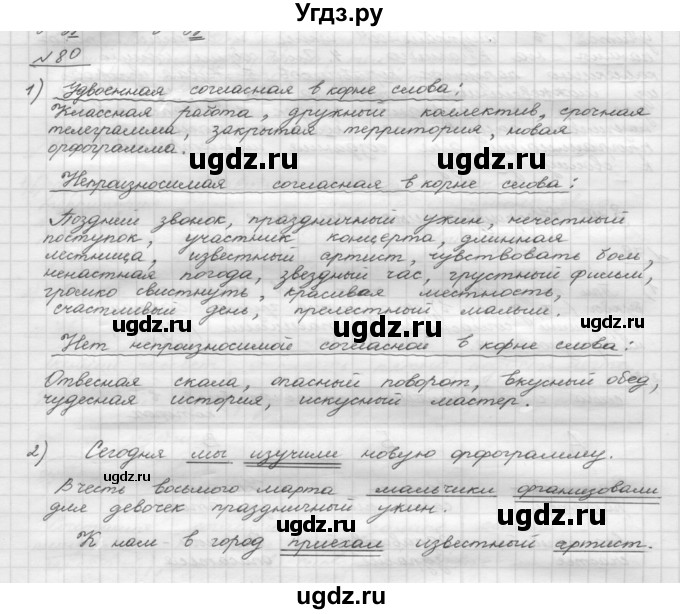 Угдз.ру
№80
1) Удвоенная согласная в корне слова:
Классная работа, дружный коллектив, срочная
телеграмма, закрытая территория, новая
орфограмма.
ugdz.ru ugdz.ru
Непроизносимая согласная в корне слова:
Поздний звонок, праздничный ужин, нечестный
поступок, участник концерта, длинная
лестница, известный артист, чувствовать боль,
ненастная погода, звездный час, грустный фильм,
громко свистнуть, красивая местность,
счастливый день, прелестный малыш.
ugdz.ru ugdz.ru
Нет непроизносимой согласной в корне слова:
Отвесная скала, опасный поворот, вкусный обед,
чудесная история, искусный мастер.
ugdz.ru
2) Сегодня мы изучили новую орфограмму.
В честь восьмого марта мальчики организовали
для девочек праздничный ужин.
ugdz.ru
К нам в город приехал известный артист.
ugdz.ru ugdz.ru